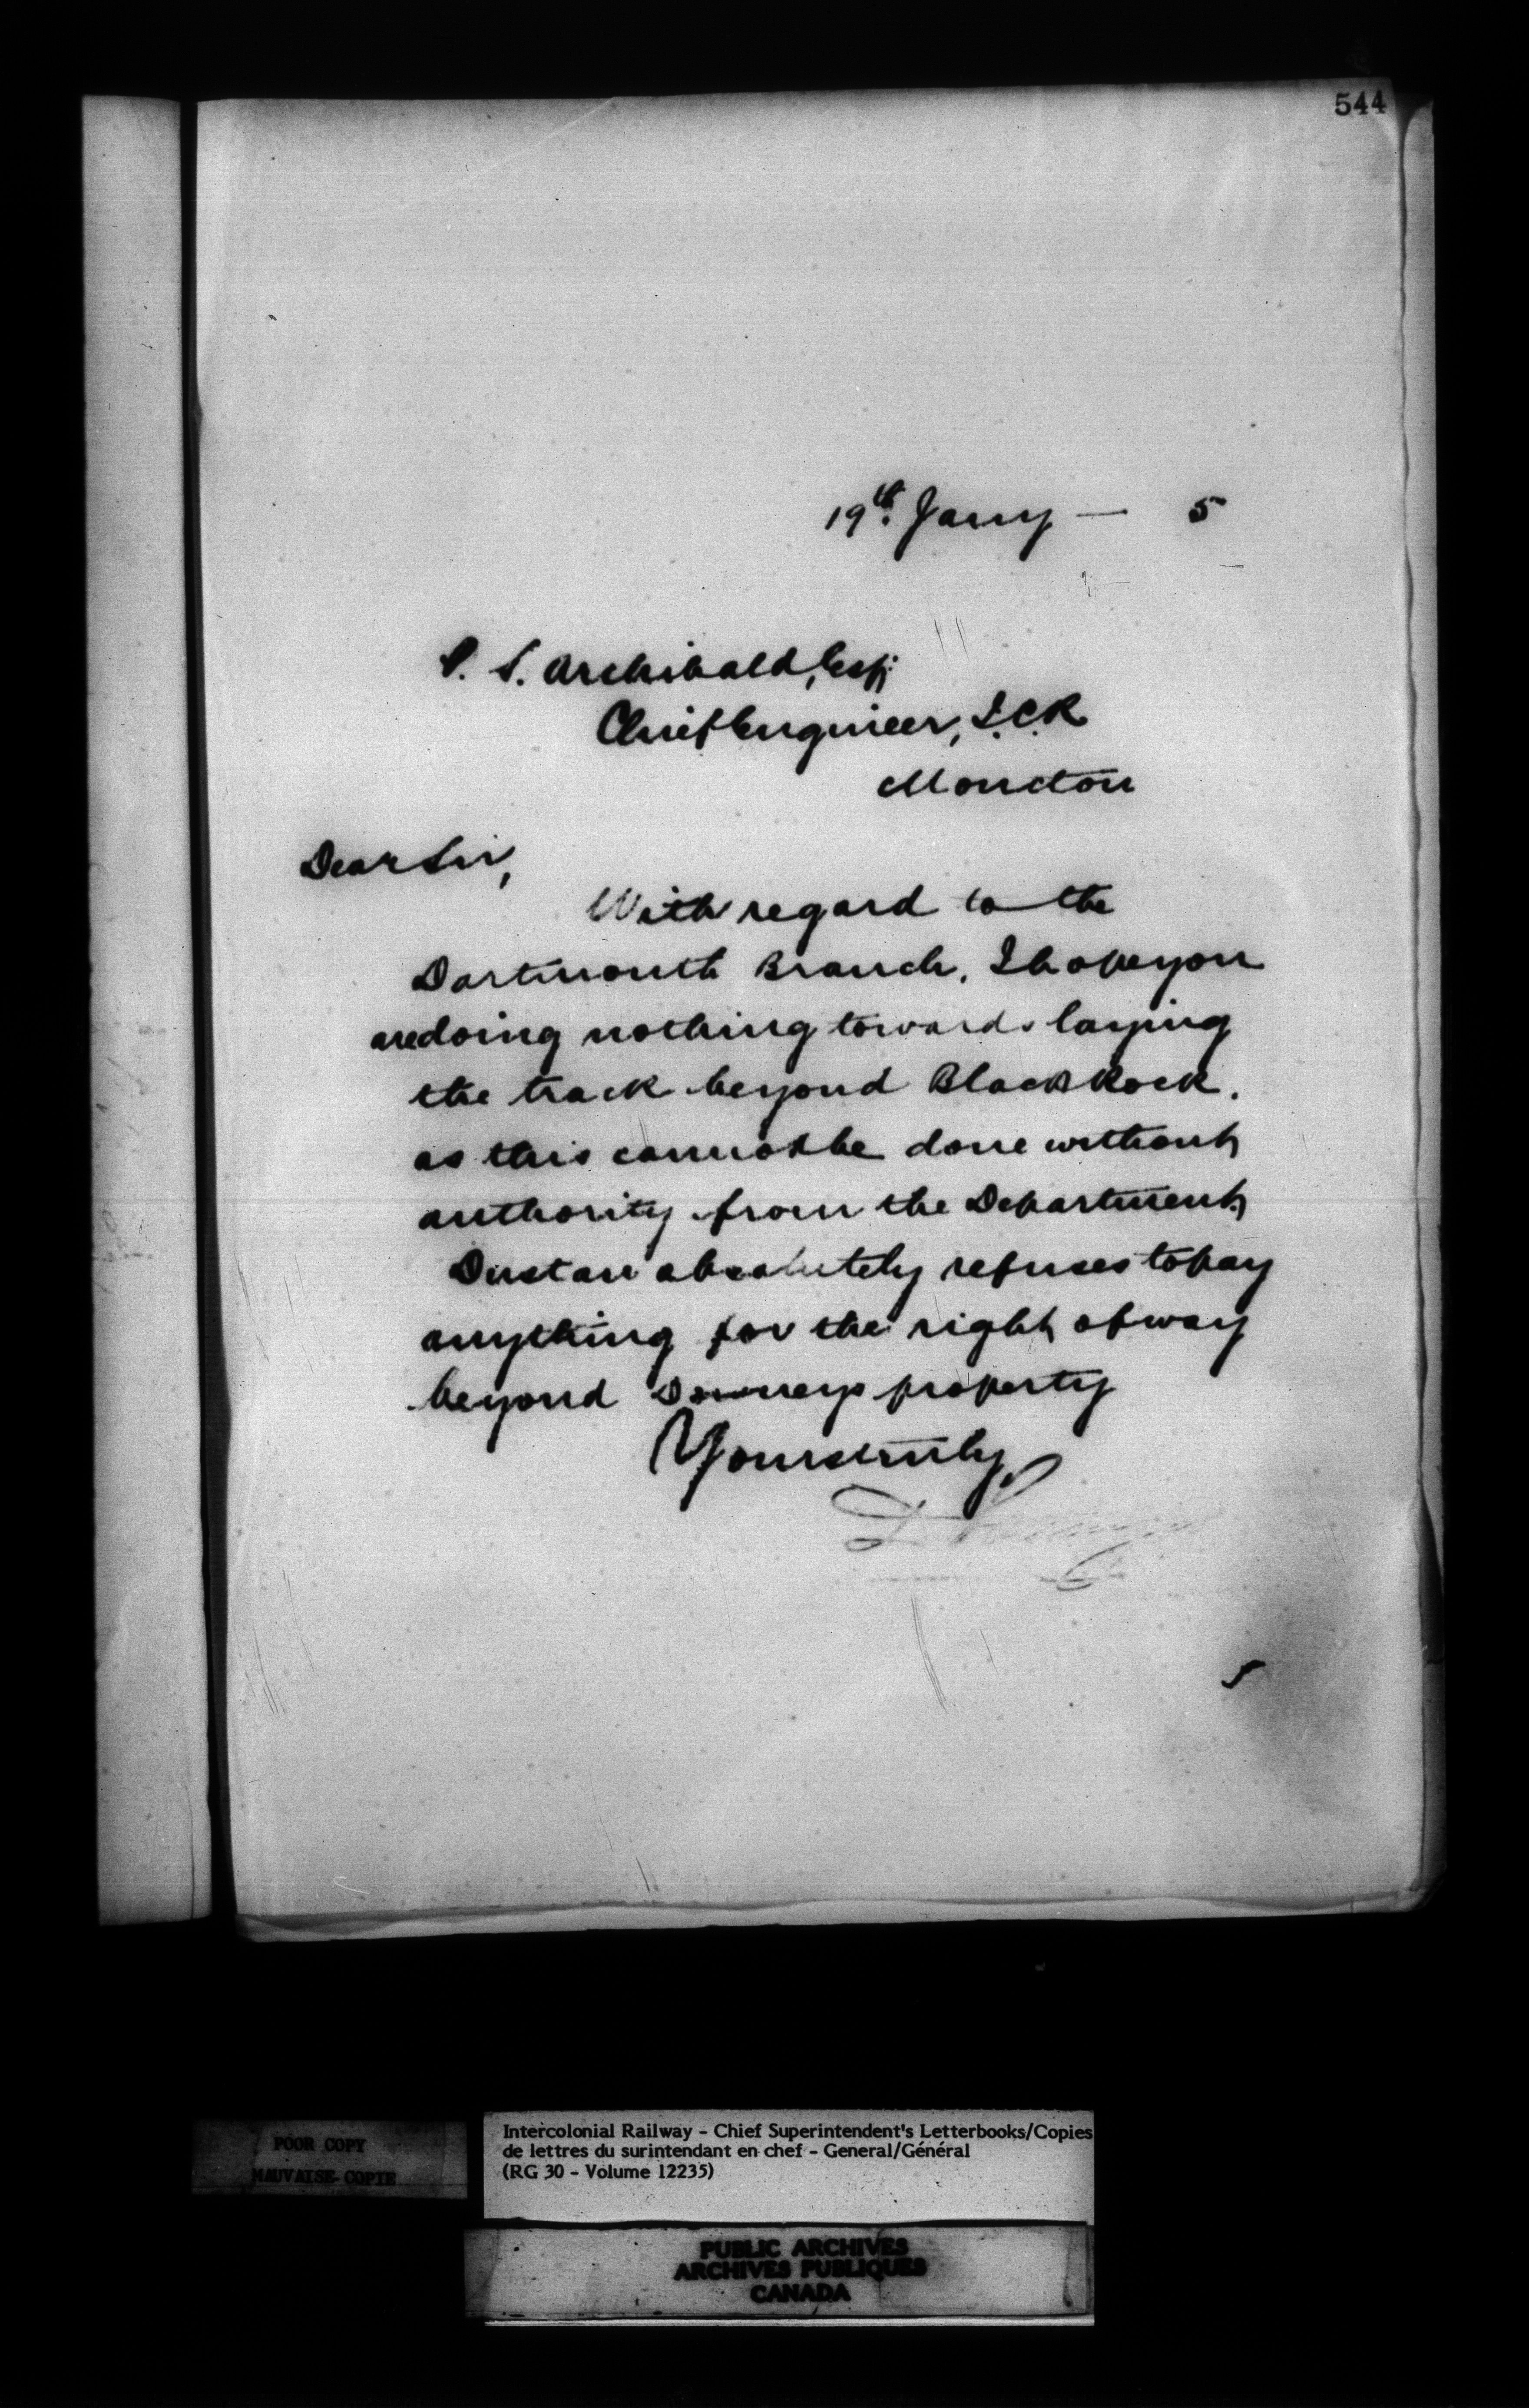 544
19th. Jany — 5
P. S. Archibald, Esq:
Chief Engineer, I.C.R
Moncton
Dear Sir,
With regard to the
Dartmouth Branch, I hope you
are doing nothing towards laying
the track beyond Black Rock.
as this cannot be done without
authority from the Department.
Dustan absolutely refuses to pay
anything for the right of way
beyond property
Yours truly
D
POOR COPY
MAUVAISE COPIE
Intercolonial Railway - Chief Superintendent's Letterbooks/Copies
de lettres du surintendant en chef - General/Général
(RG 30 - Volume 12235)
PUBLIC ARCHIVES
ARCHIVES PUBLIQUES
CANADA